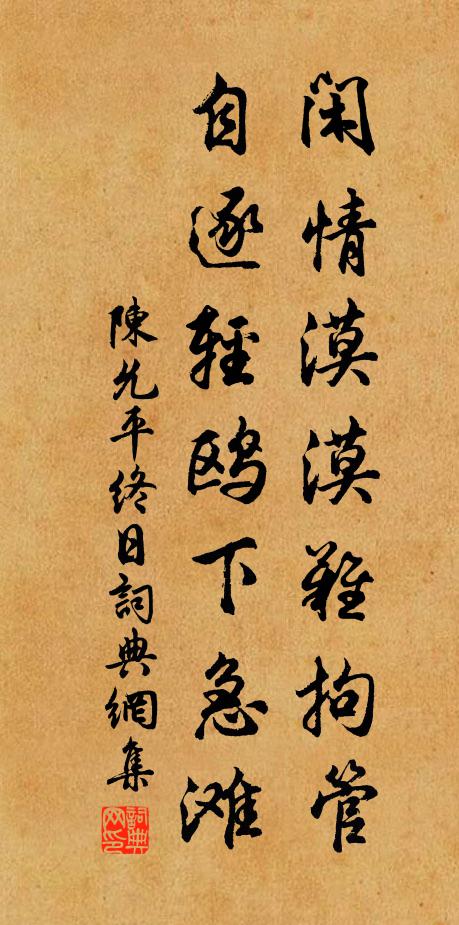 閑情漠漠難拘管
自逐輕鷗下急滩
陳允平終日詞典網集
詞典网印